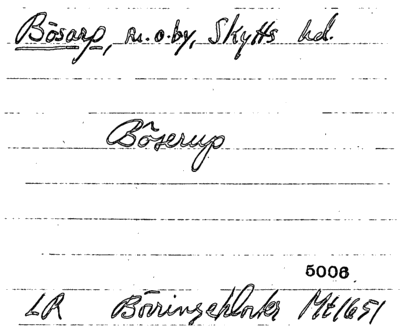 Bösarp, sn. o. by, Skytts hd.
Böserup
5006
LR Börringekloster Mt 1651